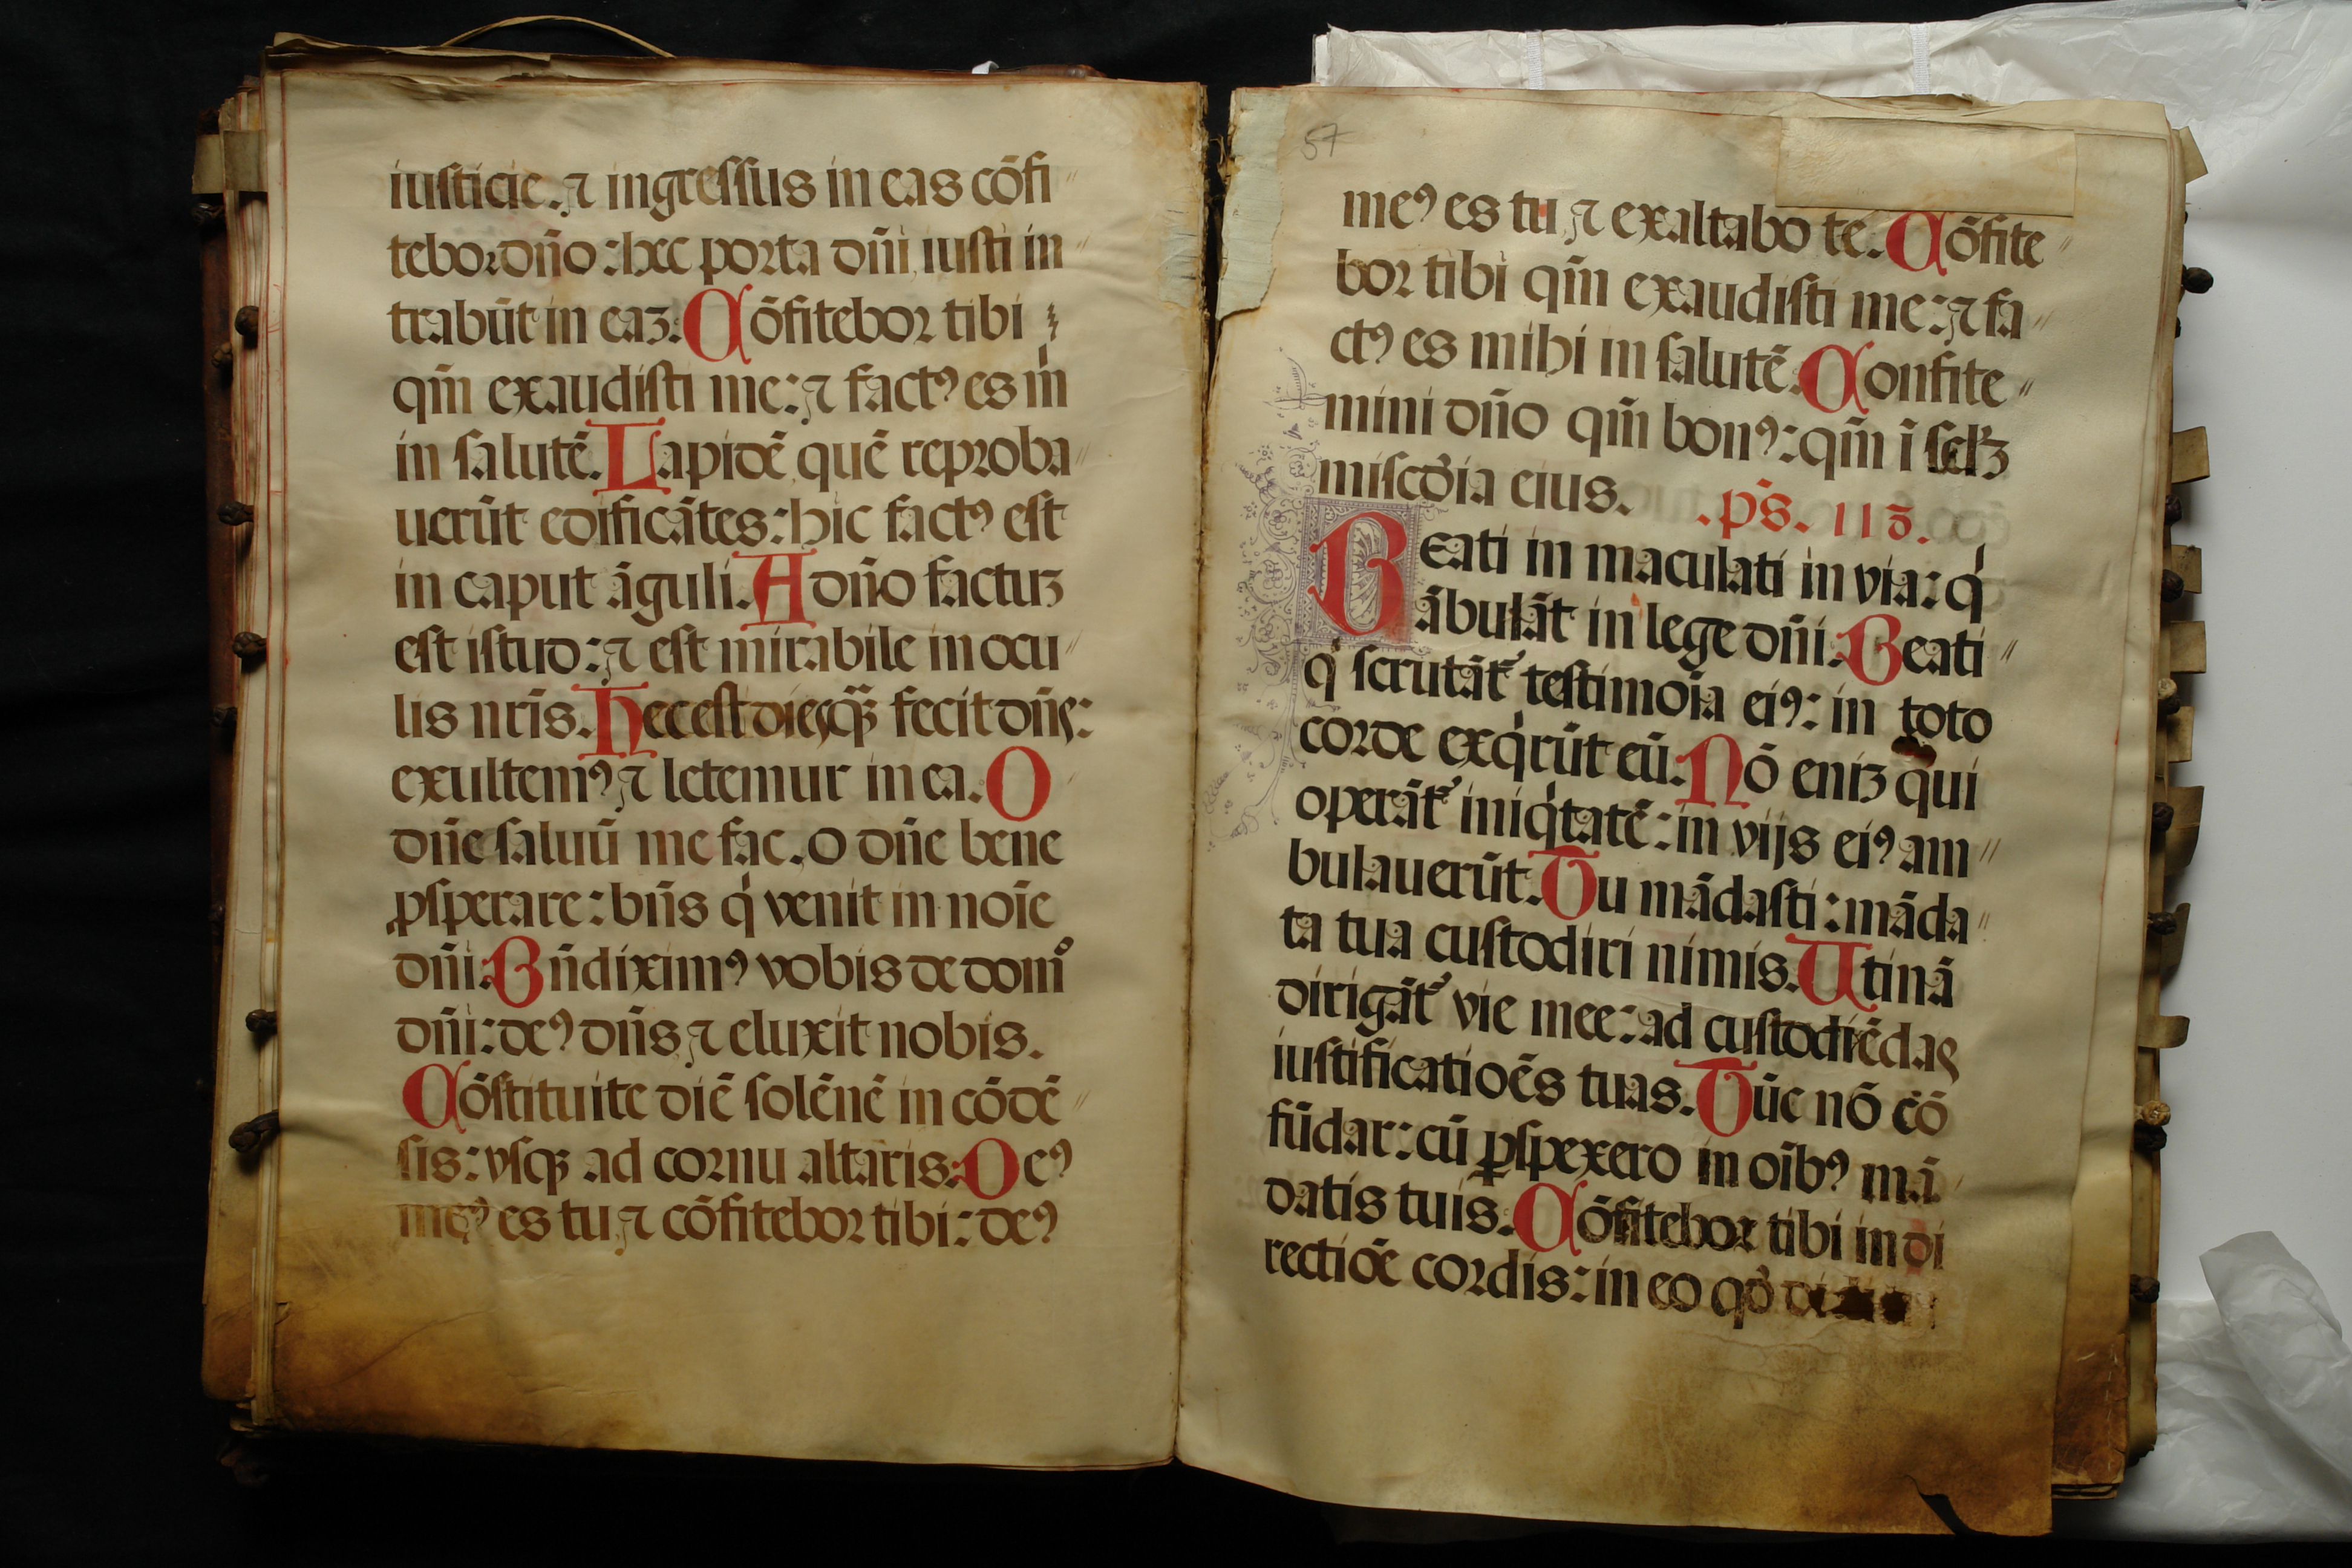 iusticie. ⁊ ingressus in eas cōfi〃
tebor dn̄o: hec porta dn̄i iusti in〃
trabūt in eaꝫ. Cōfitebor tibi
qm̄ exaudisti me: ⁊ factꝰ es m̍
in salutē. Lapidē quē reproba〃
uerūt edificātes: hic factꝰ est
in caput āguli. A dn̄o factuꝫ
est istud: ⁊ est mirabile in ocu〃
lis nr̄is. Hec est dies q̄ꝫ fecit dn̄s:
exultemꝰ ⁊ letemur in ea. O
dn̄e saluū me fac. o dn̄e bene
ꝓsperare: bn̄s q̍ venit in noīe
dn̄i. Bn̄diximꝰ vobis de domo
dn̄i: deꝰ dn̄s ⁊ eluxit nobis.
Cōstituite diē solēnē in cōdē〃
sis: vsqꝫ ad cornu altaris. Deꝰ
meꝰ es tu ⁊ cōfitebor tibi: deꝰ
57
meꝰ es tu ⁊ exaltabo te. Cōfite〃
bor tibi qm̄ exaudisti me: ⁊ fa〃
ctꝰ es mihi in salutē. Confite〃
mini dn̄o qm̄ bonꝰ: qm̄ ī sclꝫ
miscd̄ia eius. .ps̄. 118.
Beati in maculati in via: q̍
ābulāt in lege dn̄i. Beati〃
q̍ scrutāt᷑ testimoīa eiꝰ: in toto
corde exq̍rūt eū. Nō eniꝫ qui
operāt᷑ iniq̍tatē: in vijs eiꝰ am〃
bulauerūt. Tu mādasti: māda〃
ta tua custodiri nimis. Utinā
dirigāt᷑ vie mee: ad custodiēdas
iustificatiōes tuas. Tūc nō cō
fūdar: cū ꝑspexero in oībꝰ mā
datis tuis. Cōfitebor tibi in di
rectiōe cordis: in eo qđ